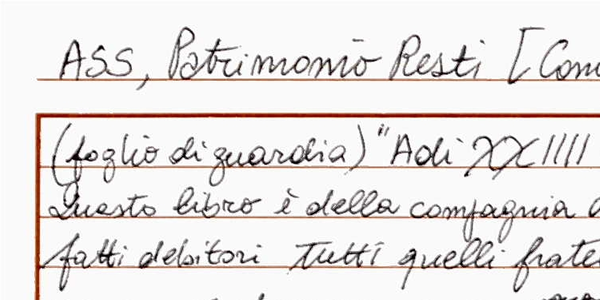 ASS, Patrimonio Resti [Com
(foglio di guardia) "Adi XXIIII
Questo libro è della compagnia
fatti debitori tutti quelli frate